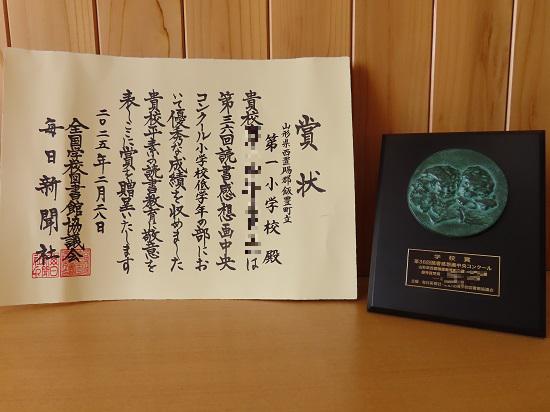 賞状
山形県西置賜郡飯豊町立
第一小学校殿
貴校は
第三六回読書感想画中央
コンクール小学校低学年の部にお
いて優秀な成績を収めました
貴校平素の読書教育に敬意を
表しここに賞を贈呈いたします
二〇二五年二月二八日
全国学校図書館協議会
毎日新聞社
学校賞
第36回読書感想画中央コンクール